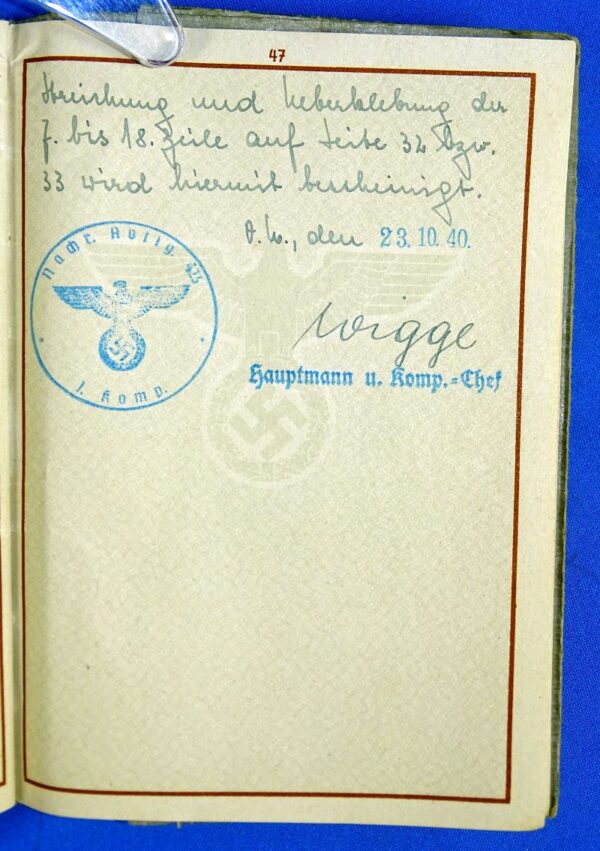 47
Streichung und Ueberklebung der
7. bis 18. Zeile auf Seite 32 bzw.
33 wird hiermit bescheinigt.
O.U., den 23.10.40.
Nachr. Abtlg. 433
1. Komp.
Wigge
Hauptmann u. Komp.=Chef